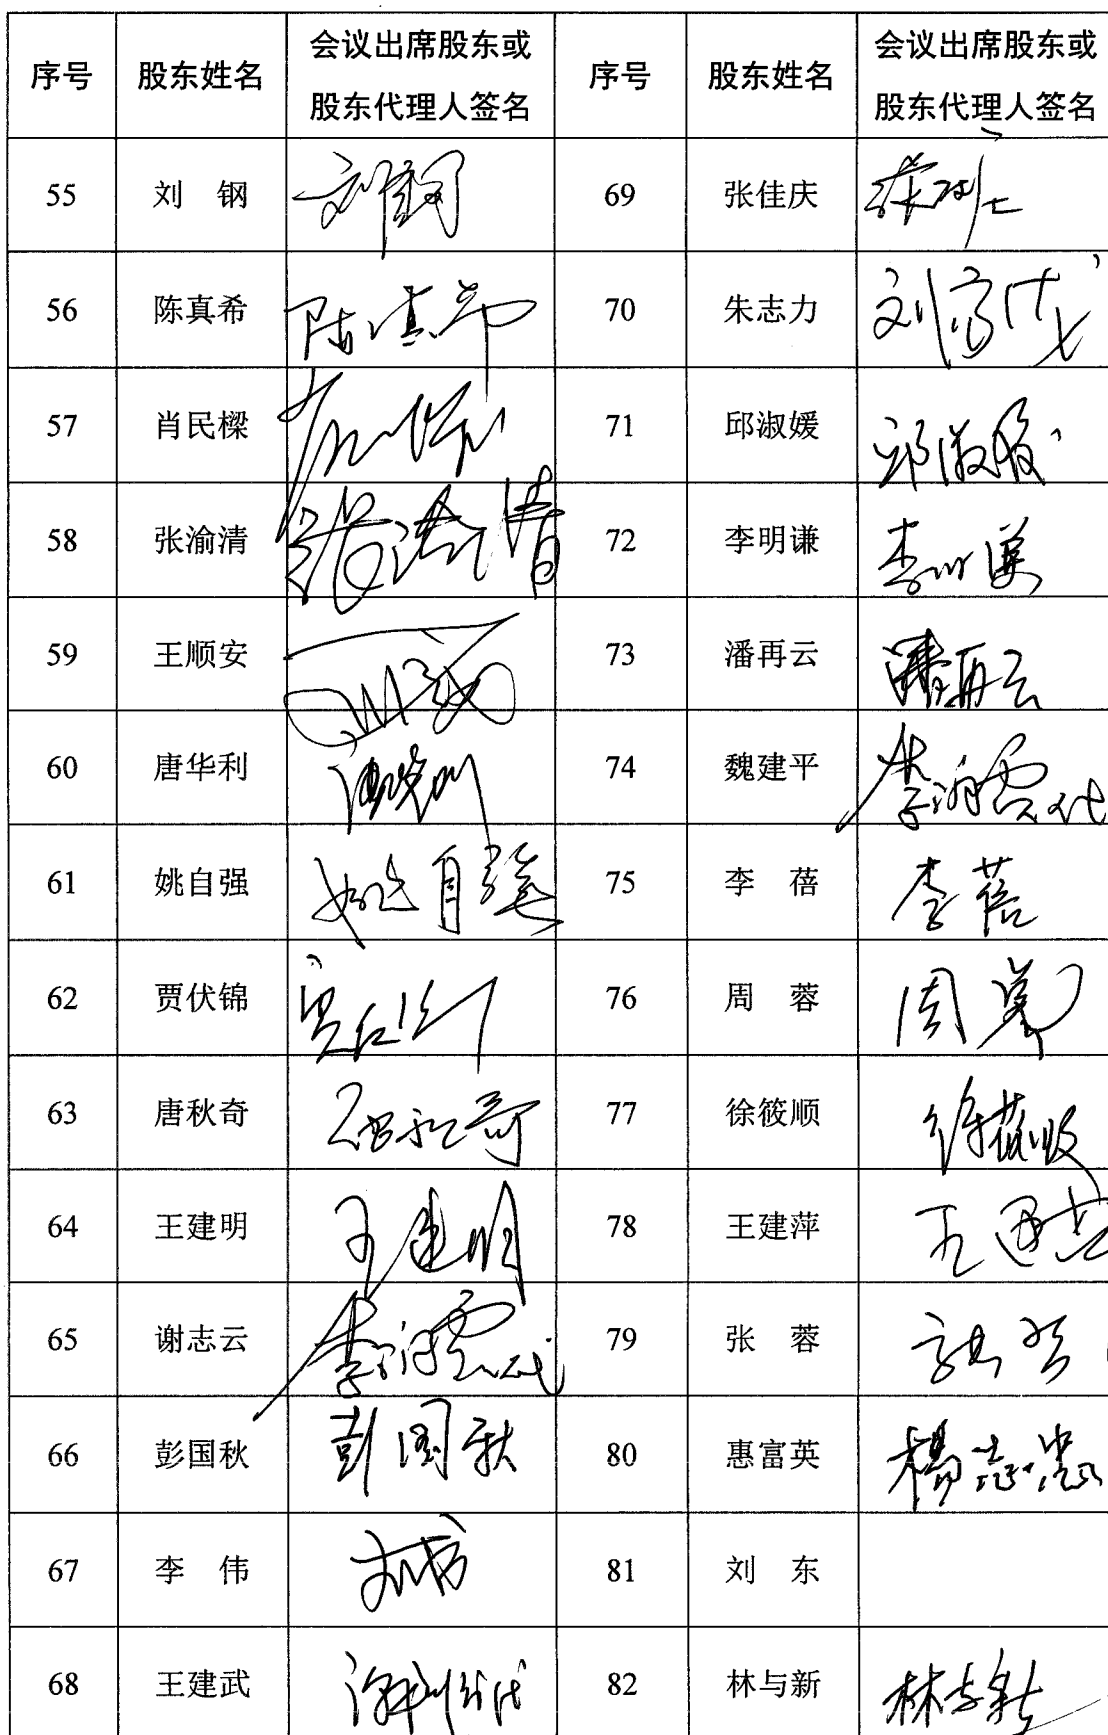 序号 股东姓名 会议出席股东或股东代理人签名 序号 股东姓名 会议出席股东或股东代理人签名
55 刘 钢 刘钢 69 张佳庆
56 陈真希 陈真希 70 朱志力
57 肖民樑 71 邱淑媛 邱淑媛
58 张渝清 张渝清 72 李明谦 李明谦
59 王顺安 73 潘再云 潘再云
60 唐华利 74 魏建平
61 姚自强 姚自强 75 李 蓓 李蓓
62 贾伏锦 76 周 蓉 周蓉
63 唐秋奇 唐秋奇 77 徐筱顺 徐筱顺
64 王建明 王建明 78 王建萍 王建萍
65 谢志云 79 张 蓉 张蓉
66 彭国秋 彭国秋 80 惠富英 楊志忠
67 李 伟 81 刘 东
68 王建武 82 林与新 林与新